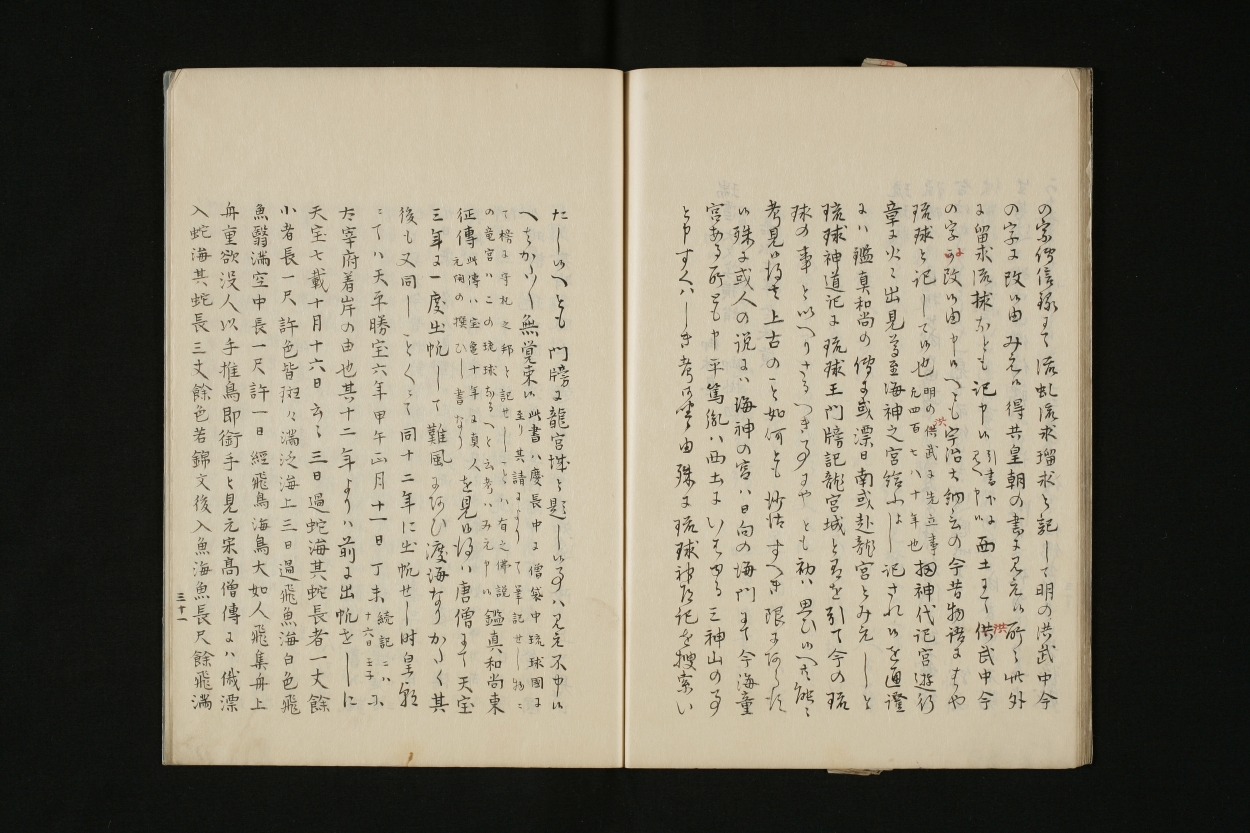 の宗伝信録にて流虬流求瑠求と記して明の洪武中今
の字に改い由みえい得共皇朝の書に見えい所と此外
に留求流捄なとも記中い引書下に西土にて供武中今
洪
の字に改い由中いへとも宇治大納言の今昔物語にもはや
琉球と記してい也明の供武に先立事
洪
凡四百七八十年也扨神代記宮遊行
章に火々出見尊至海神之宮給ふよし記されいを通證
には鑑真和尚の伝に或漂日南或赴龍宮とみえしと
琉球神道記に琉球王門牓記龍宮城と有を引て今の琉
球の事といへりさるつき事にやとも初は思いへ共能々
考見い得は上古のこと如何とも
い殊に或人の説には海神の宮は日向の海門にて今海童
宮ある所とも中平篤胤は西土にいはゆる三神山の事
と中すくはしき考 由殊に琉球神道記を捜索い
たしいへとも門牓に龍宮城と題しい事は見え不中い
へはかた〱無覚束い此書は慶長中に僧袋中琉球国に
至り其請によりて筆記せし物に
て榜に守礼之邦と記せしことは有之佛説
の竜宮はこの琉球なるへと云考はみえ中い鑑真和尚東
征傳此傳は宝亀十年に真人
元開の撰ひし書なりを見い得は唐僧にて天宝
三年に一度出帆して難風にあひ渡海なりかたく其
後も又同しことくにて同十二年に出帆せし時皇朝
にては天平勝宝六年甲午正月十一日丁未続記には
十六日壬子に
太宰府着岸の由也其十二年よりは前に出帆をしに
天宝七載十月十六日云々三日過蛇海其蛇長者一丈餘
小者長一尺許色皆斑々満泛海上三日過飛魚海白色飛
魚翳満空中長一尺許一日經飛鳥海鳥大如人飛集舟上
舟重欲没人以手推鳥即銜手と見元宋高僧傳には俄漂
入蛇海其蛇長三丈餘色若錦文後入魚海魚長尺餘飛満
三十一